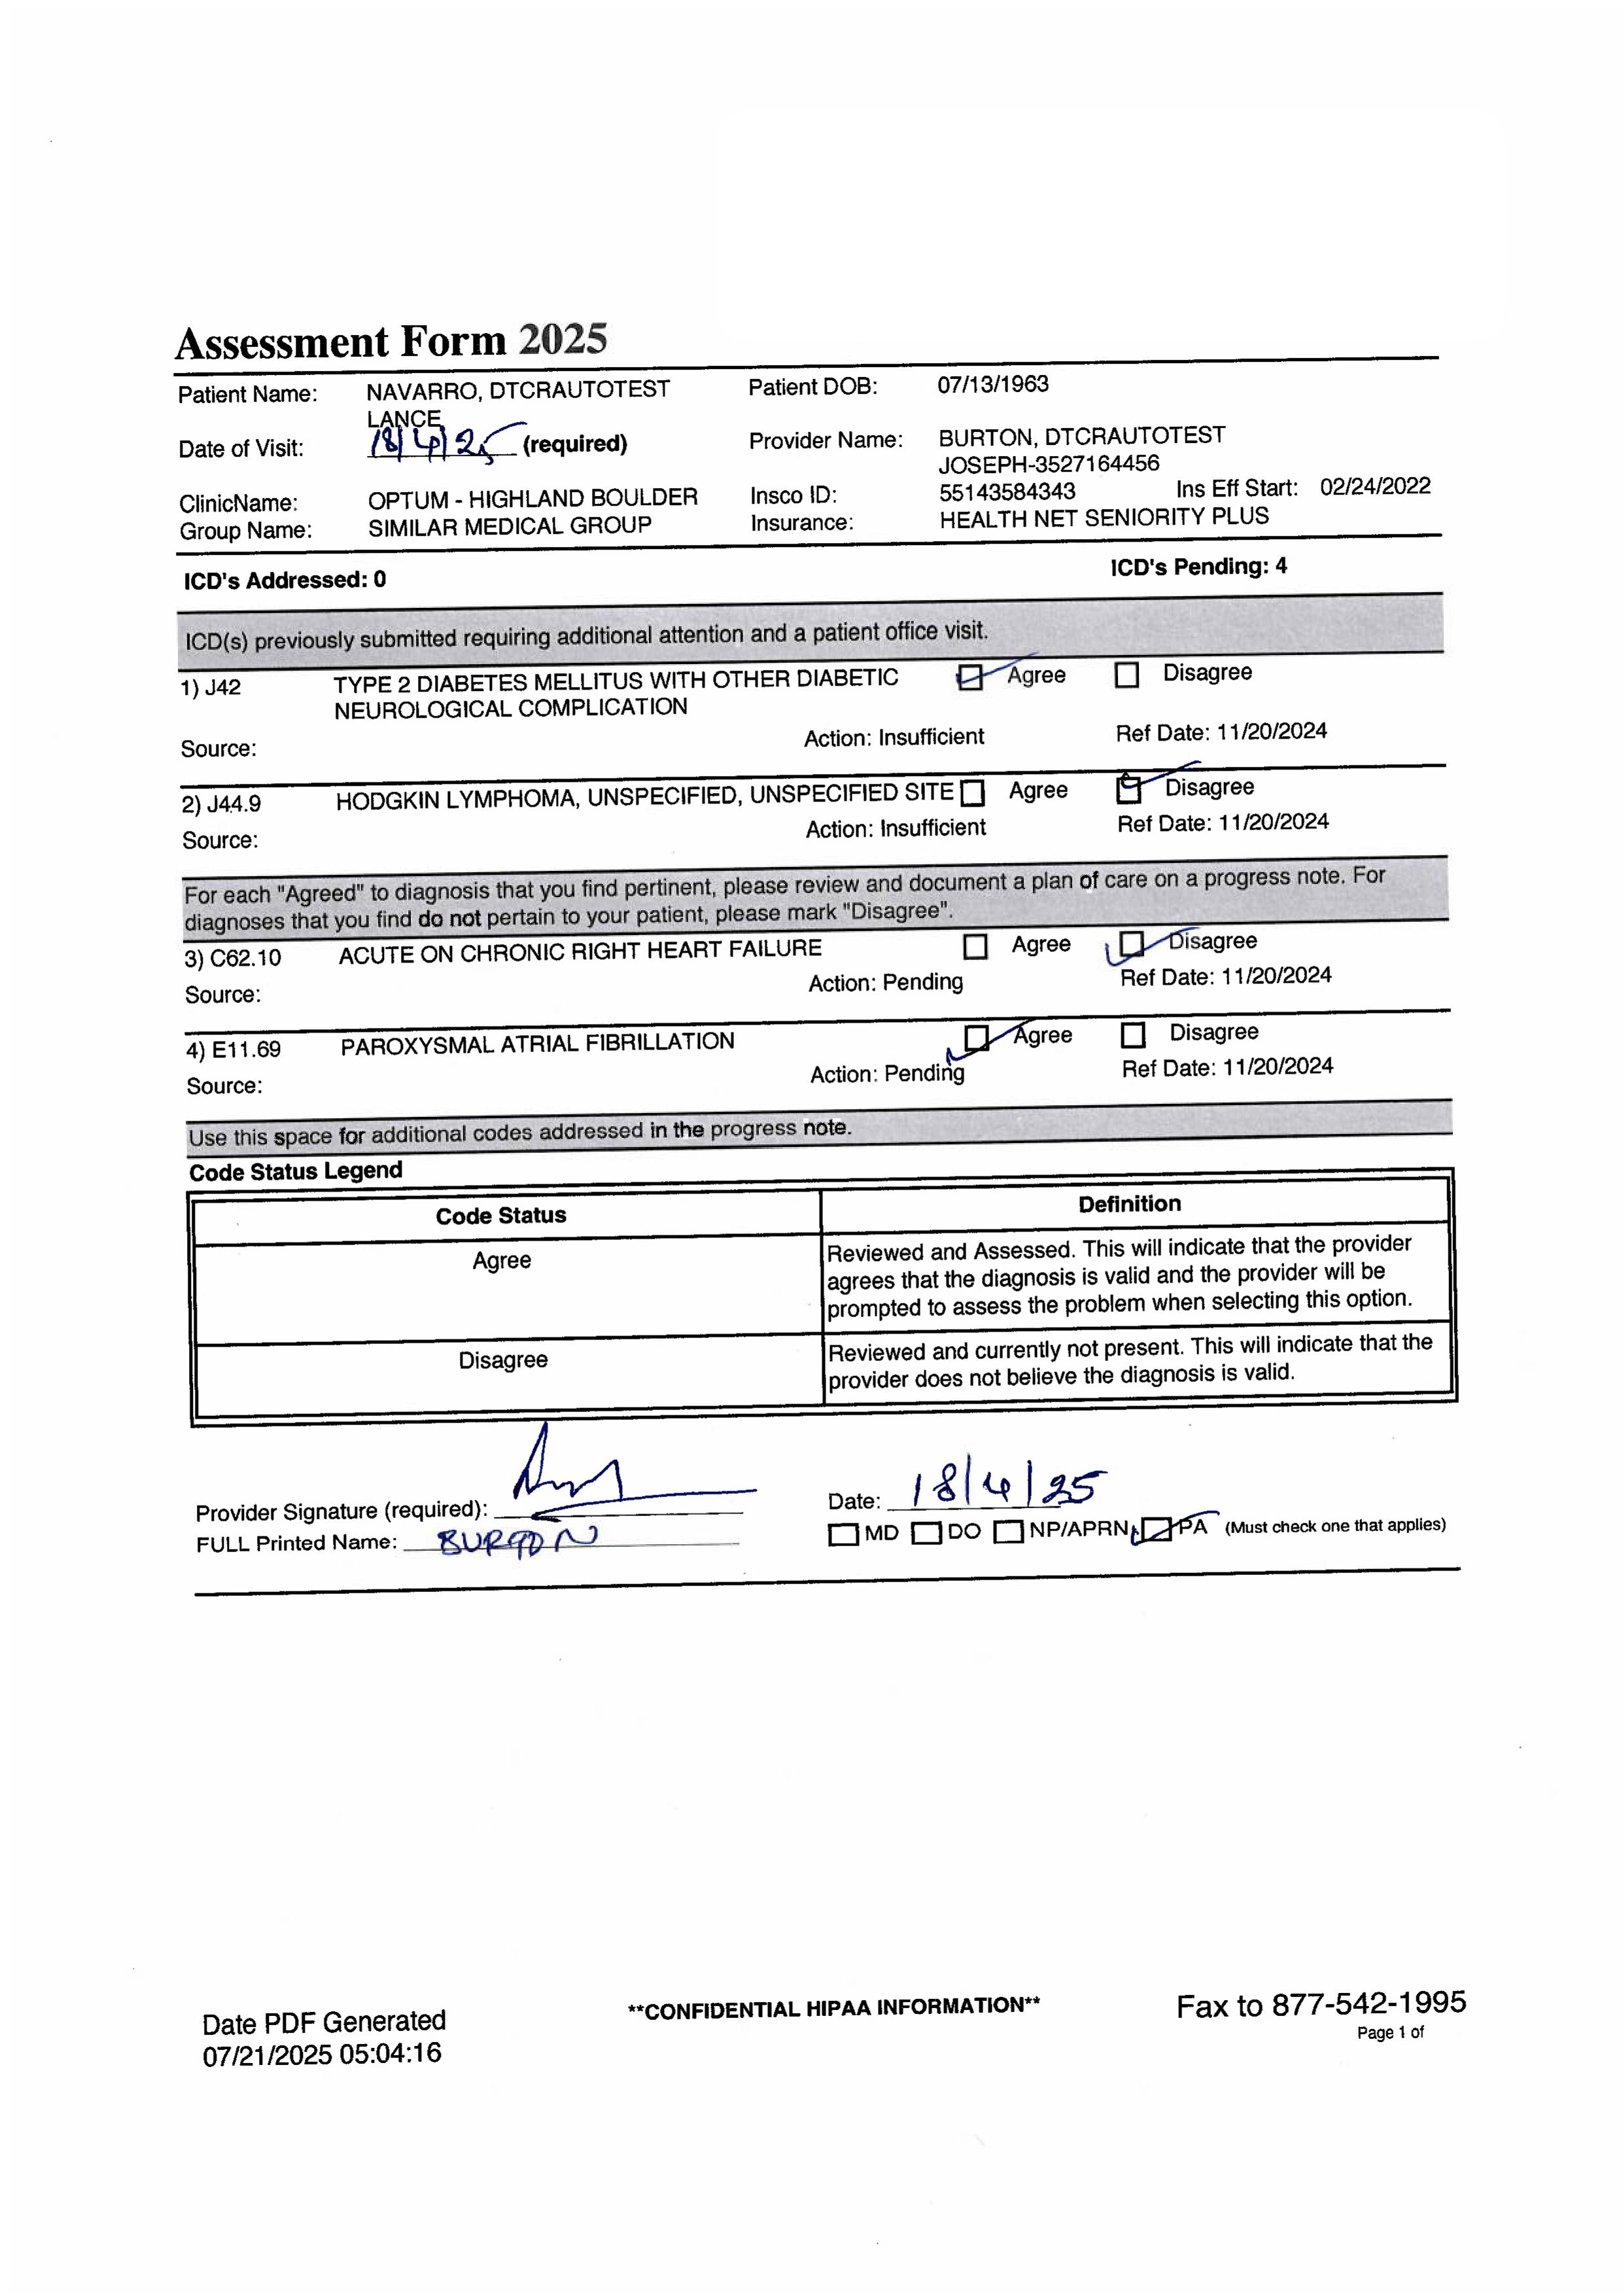 Assessment Form 2025
Patient Name: NAVARRO, DTCRAUTOTEST LANCE Patient DOB: 07/13/1963
Date of Visit: 18/4/25 (required) Provider Name: BURTON, DTCRAUTOTEST JOSEPH-3527164456
ClinicName: OPTUM - HIGHLAND BOULDER Insco ID: 55143584343 Ins Eff Start: 02/24/2022
Group Name: SIMILAR MEDICAL GROUP Insurance: HEALTH NET SENIORITY PLUS
ICD's Addressed: 0 ICD's Pending: 4
ICD(s) previously submitted requiring additional attention and a patient office visit.
1) J42 TYPE 2 DIABETES MELLITUS WITH OTHER DIABETIC NEUROLOGICAL COMPLICATION Agree Disagree
Source: Action: Insufficient Ref Date: 11/20/2024
2) J44.9 HODGKIN LYMPHOMA, UNSPECIFIED, UNSPECIFIED SITE Agree Disagree
Source: Action: Insufficient Ref Date: 11/20/2024
For each "Agreed" to diagnosis that you find pertinent, please review and document a plan of care on a progress note. For
diagnoses that you find do not pertain to your patient, please mark "Disagree".
3) C62.10 ACUTE ON CHRONIC RIGHT HEART FAILURE Agree Disagree
Source: Action: Pending Ref Date: 11/20/2024
4) E11.69 PAROXYSMAL ATRIAL FIBRILLATION Agree Disagree
Source: Action: Pending Ref Date: 11/20/2024
Use this space for additional codes addressed in the progress note.
Code Status Legend
Code Status Definition
Agree Reviewed and Assessed. This will indicate that the provider
agrees that the diagnosis is valid and the provider will be
prompted to assess the problem when selecting this option.
Disagree Reviewed and currently not present. This will indicate that the
provider does not believe the diagnosis is valid.
Provider Signature (required): Date: 18/4/25
FULL Printed Name: BURTON MD DO NP/APRN PA (Must check one that applies)
Date PDF Generated **CONFIDENTIAL HIPAA INFORMATION** Fax to 877-542-1995
07/21/2025 05:04:16 Page 1 of